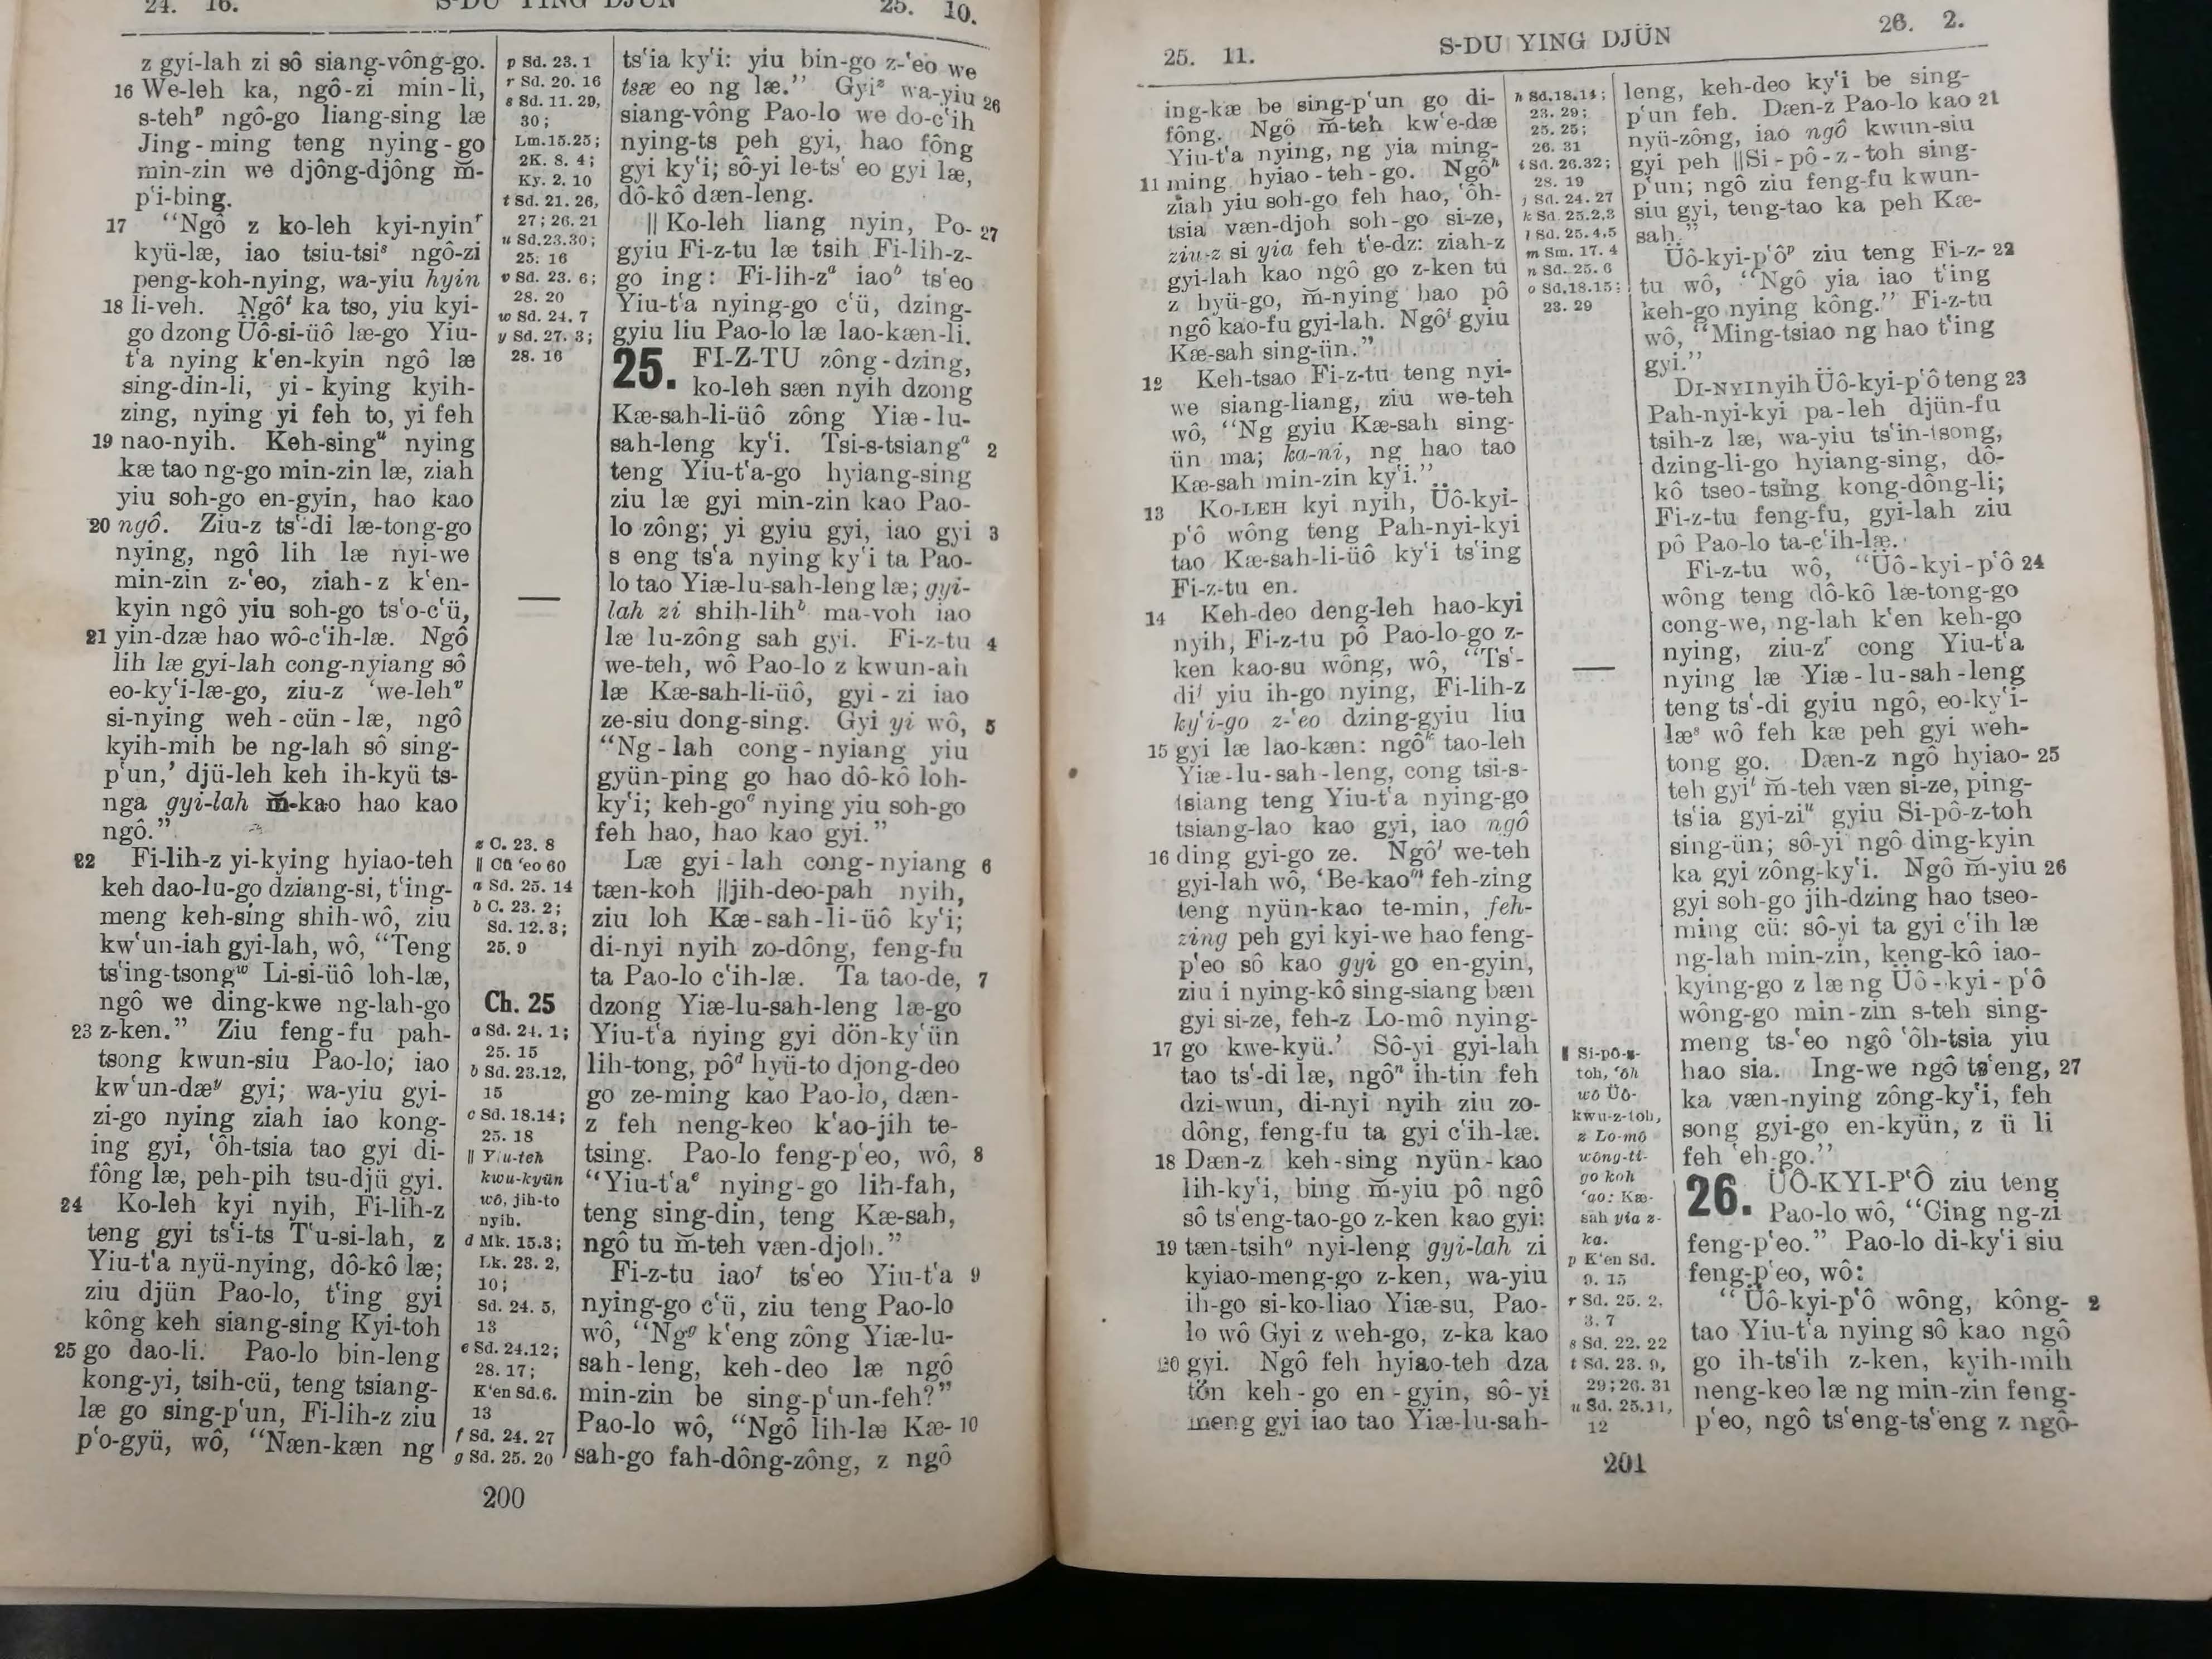 24. 16.
S-DU YING DJÜN
25. 10.
z gyi-lah zi sô siang-vông-go.
16 We-leh ka, ngô-zi min-li,
s-tehᵖ ngô-go liang-sing læ
Jing-ming teng nying-go
min-zin we djông-djông m̆-
p'i-bing.
17 “Ngô z ko-leh kyi-nyinʳ
kyü-læ, iao tsiu-tsiˢ ngô-zi
peng-koh-nying, wa-yiu hyin
18 li-veh. Ngôᵗ ka tso, yiu kyi-
go dzong Üô-si-üô læ-go Yiu-
t'a nying k'en-kyin ngô læ
sing-din-li, yi-kying kyih-
zing, nying yi feh to, yi feh
19 nao-nyih. Keh-singᵘ nying
kæ tao ng-go min-zin læ, ziah
yiu soh-go en-gyin, hao kao
20 ngô. Ziu-z ts'-di læ-tong-go
nying, ngô lih læ nyi-we
min-zin z-'eo, ziah-z k'en-
kyin ngô yiu soh-go ts'o-c'ü,
21 yin-dzæ hao wô-c'ih-læ. Ngô
lih læ gyi-lah cong-nyiang sô
eo-ky'i-læ-go, ziu-z ‘we-lehᵛ
si-nying weh-cün-læ, ngô
kyih-mih be ng-lah sô sing-
p'un,’ djü-leh keh ih-kyü ts-
nga gyi-lah m̆-kao hao kao
ngô.”
22 Fi-lih-z yi-kying hyiao-teh
keh dao-lu-go dziang-si, t'ing-
meng keh-sing shih-wô, ziu
kw'un-iah gyi-lah, wô, “Teng
ts'ing-tsongʷ Li-si-üô loh-læ,
ngô we ding-kwe ng-lah-go
23 z-ken.” Ziu feng-fu pah-
tsong kwun-siu Pao-lo; iao
kw'un-dæʸ gyi; wa-yiu gyi-
zi-go nying ziah iao kong-
ing gyi, 'ôh-tsia tao gyi di-
fông læ, peh-pih tsu-djü gyi.
24 Ko-leh kyi nyih, Fi-lih-z
teng gyi ts'i-ts T'u-si-lah, z
Yiu-t'a nyü-nying, dô-kô læ;
ziu djün Pao-lo, t'ing gyi
kông keh siang-sing Kyi-toh
25 go dao-li. Pao-lo bin-leng
kong-yi, tsih-cü, teng tsiang-
læ go sing-p'un, Fi-lih-z ziu
p'o-gyü, wô, “Næn-kæn ng
p Sd. 23. 1
r Sd. 20. 16
s Sd. 11. 29,
30;
Lm. 15. 25;
2K. 8. 4;
Ky. 2. 10
t Sd. 21. 26,
27; 26. 21
u Sd. 23. 30;
25. 16
v Sd. 23. 6;
28. 20
w Sd. 24. 7
y Sd. 27. 3;
28. 16
z C. 23. 8
‖ Cü 'eo 60
a Sd. 25. 14
b C. 23. 2;
Sd. 12. 3;
25. 9
Ch. 25
a Sd. 24. 1;
25. 15
b Sd. 23. 12,
15
c Sd. 18. 14;
25. 18
‖ Yiu-teh
kwu-kyün
wô, jih-to
nyih.
d Mk. 15. 3;
Lk. 23. 2,
10;
Sd. 24. 5,
13
e Sd. 24. 12;
28. 17;
K'en Sd. 6.
13
f Sd. 24. 27
g Sd. 25. 20
ts'ia ky'i: yiu bin-go z-'eo we
tsæ eo ng læ.” Gyiᶻ wa-yiu 26
siang-vông Pao-lo we do-c'ih
nying-ts peh gyi, hao fông
gyi ky'i; sô-yi le-ts' eo gyi læ,
dô-kô dæn-leng.
‖ Ko-leh liang nyin, Po- 27
gyiu Fi-z-tu læ tsih Fi-lih-z-
go ing: Fi-lih-zᵃ iaoᵇ ts'eo
Yiu-t'a nying-go c'ü, dzing-
gyiu liu Pao-lo læ lao-kæn-li.
25. FI-Z-TU zông-dzing,
ko-leh sæn nyih dzong
Kæ-sah-li-üô zông Yiæ-lu-
sah-leng ky'i. Tsi-s-tsiangᵃ 2
teng Yiu-t'a-go hyiang-sing
ziu læ gyi min-zin kao Pao-
lo zông; yi gyiu gyi, iao gyi 3
s eng ts'a nying ky'i ta Pao-
lo tao Yiæ-lu-sah-leng læ; gyi-
lah zi shih-lihᵇ ma-voh iao
læ lu-zông sah gyi. Fi-z-tu 4
we-teh, wô Pao-lo z kwun-ah
læ Kæ-sah-li-üô, gyi-zi iao
ze-siu dong-sing. Gyi yi wô, 5
“Ng-lah cong-nyiang yiu
gyün-ping go hao dô-kô loh-
ky'i; keh-goᶜ nying yiu soh-go
feh hao, hao kao gyi.”
Læ gyi-lah cong-nyiang 6
tæn-koh ‖jih-deo-pah nyih,
ziu loh Kæ-sah-li-üô ky'i;
di-nyi nyih zo-dông, feng-fu
ta Pao-lo c'ih-læ. Ta tao-de, 7
dzong Yiæ-lu-sah-leng læ-go
Yiu-t'a nying gyi dön-ky'ün
lih-tong, pôᵈ hyü-to djong-deo
go ze-ming kao Pao-lo, dæn-
z feh neng-keo k'ao-jih te-
tsing. Pao-lo feng-p'eo, wô, 8
“Yiu-t'aᵉ nying-go lih-fah,
teng sing-din, teng Kæ-sah,
ngô tu m̆-teh væn-djoh.”
Fi-z-tu iaoᶠ ts'eo Yiu-t'a 9
nying-go c'ü, ziu teng Pao-lo
wô, “Ngᵍ k'eng zông Yiæ-lu-
sah-leng, keh-deo læ ngô
min-zin be sing-p'un-feh?”
Pao-lo wô, “Ngô lih-læ Kæ- 10
sah-go fah-dông-zông, z ngô
200
25. 11.
S-DU YING DJÜN
26. 2.
ing-kæ be sing-p'un go di-
fông. Ngô m̆-teh kw'e-dæ
Yiu-t'a nying, ng yia ming-
11 ming hyiao-teh-go. Ngôʰ
ziah yiu soh-go feh hao, 'ôh-
tsia væn-djoh soh-go si-ze,
ziu-z si yia feh t'e-dz: ziah-z
gyi-lah kao ngô go z-ken tu
z hyü-go, m̆-nying hao pô
ngô kao-fu gyi-lah. Ngôⁱ gyiu
Kæ-sah sing-ün.”
12 Keh-tsao Fi-z-tu teng nyi-
we siang-liang, ziu we-teh
wô, “Ng gyiu Kæ-sah sing-
ün ma; ka-ni, ng hao tao
Kæ-sah min-zin ky'i.”
13 Ko-leh kyi nyih, Üô-kyi-
p'ô wông teng Pah-nyi-kyi
tao Kæ-sah-li-üô ky'i ts'ing
Fi-z-tu en.
14 Keh-deo deng-leh hao-kyi
nyih, Fi-z-tu pô Pao-lo-go z-
ken kao-su wông, wô, “Ts'-
diʲ yiu ih-go nying, Fi-lih-z
ky'i-go z-'eo dzing-gyiu liu
15 gyi læ lao-kæn: ngôᵏ tao-leh
Yiæ-lu-sah-leng, cong tsi-s-
tsiang teng Yiu-t'a nying-go
tsiang-lao kao gyi, iao ngô
16 ding gyi-go ze. Ngôˡ we-teh
gyi-lah wô, ‘Be-kaoᵐ feh-zing
teng nyün-kao te-min, feh-
zing peh gyi kyi-we hao feng-
p'eo sô kao gyi go en-gyin,
ziu i nying-kô sing-siang bæn
gyi si-ze, feh-z Lo-mô nying-
17 go kwe-kyü.’ Sô-yi gyi-lah
tao ts'-di læ, ngôⁿ ih-tin feh
dzi-wun, di-nyi nyih ziu zo-
dông, feng-fu ta gyi c'ih-læ.
18 Dæn-z keh-sing nyün-kao
lih-ky'i, bing m̆-yiu pô ngô
sô ts'eng-tao-go z-ken kao gyi:
19 tæn-tsihᵒ nyi-leng gyi-lah zi
kyiao-meng-go z-ken, wa-yiu
ih-go si-ko-liao Yiæ-su, Pao-
lo wô Gyi z weh-go, z-ka kao
20 gyi. Ngô feh hyiao-teh dza
tön keh-go en-gyin, sô-yi
meng gyi iao tao Yiæ-lu-sah-
h Sd. 18. 14;
23. 29;
25. 25;
26. 31
i Sd. 26. 32;
28. 19
j Sd. 24. 27
k Sd. 25. 2, 3
l Sd. 25. 4, 5
m Sm. 17. 4
n Sd. 25. 6
o Sd. 18. 15;
23. 29
‖ Si-pô-z-
toh, 'ôh
wô Üô-
kwu-z-toh,
z Lo-mô
wông-ti-
go koh
'ao: Kæ-
sah yia z-
ka.
p K'en Sd.
9. 15
r Sd. 25. 2,
3. 7
s Sd. 22. 22
t Sd. 23. 9,
29; 26. 31
u Sd. 25. 11,
12
leng, keh-deo ky'i be sing-
p'un feh. Dæn-z Pao-lo kao 21
nyü-zông, iao ngô kwun-siu
gyi peh ‖Si-pô-z-toh sing-
p'un; ngô ziu feng-fu kwun-
siu gyi, teng-tao ka peh Kæ-
sah.”
Üô-kyi-p'ôᵖ ziu teng Fi-z- 22
tu wô, “Ngô yia iao t'ing
keh-go nying kông.” Fi-z-tu
wô, “Ming-tsiao ng hao t'ing
gyi.”
Di-nyi nyih Üô-kyi-p'ô teng 23
Pah-nyi-kyi pa-leh djün-fu
tsih-z læ, wa-yiu ts'in-tsong,
dzing-li-go hyiang-sing, dô-
kô tseo-tsing kong-dông-li;
Fi-z-tu feng-fu, gyi-lah ziu
pô Pao-lo ta-c'ih-læ.
Fi-z-tu wô, “Üô-kyi-p'ô 24
wông teng dô-kô læ-tong-go
cong-we, ng-lah k'en keh-go
nying, ziu-zʳ cong Yiu-t'a
nying læ Yiæ-lu-sah-leng
teng ts'-di gyiu ngô, eo-ky'i-
læˢ wô feh kæ peh gyi weh-
tong go. Dæn-z ngô hyiao- 25
teh gyiᵗ m̆-teh væn si-ze, ping-
ts'ia gyi-ziᵘ gyiu Si-pô-z-toh
sing-ün; sô-yi ngô ding-kyin
ka gyi zông-ky'i. Ngô m̆-yiu 26
gyi soh-go jih-dzing hao tseo-
ming cü: sô-yi ta gyi c'ih læ
ng-lah min-zin, keng-kô iao-
kying-go z læ ng Üô-kyi-p'ô
wông-go min-zin s-teh sing-
meng ts-'eo ngô 'ôh-tsia yiu
hao sia. Ing-we ngô ts'eng, 27
ka væn-nying zông-ky'i, feh
song gyi-go en-kyün, z ü li
feh 'eh-go.”
26. ÜÔ-KYI-P'Ô ziu teng
Pao-lo wô, “Cing ng-zi
feng-p'eo.” Pao-lo di-ky'i siu
feng-p'eo, wô:
“Üô-kyi-p'ô wông, kông- 2
tao Yiu-t'a nying sô kao ngô
go ih-ts'ih z-ken, kyih-mih
neng-keo læ ng min-zin feng-
p'eo, ngô ts'eng-ts'eng z ngô-
201